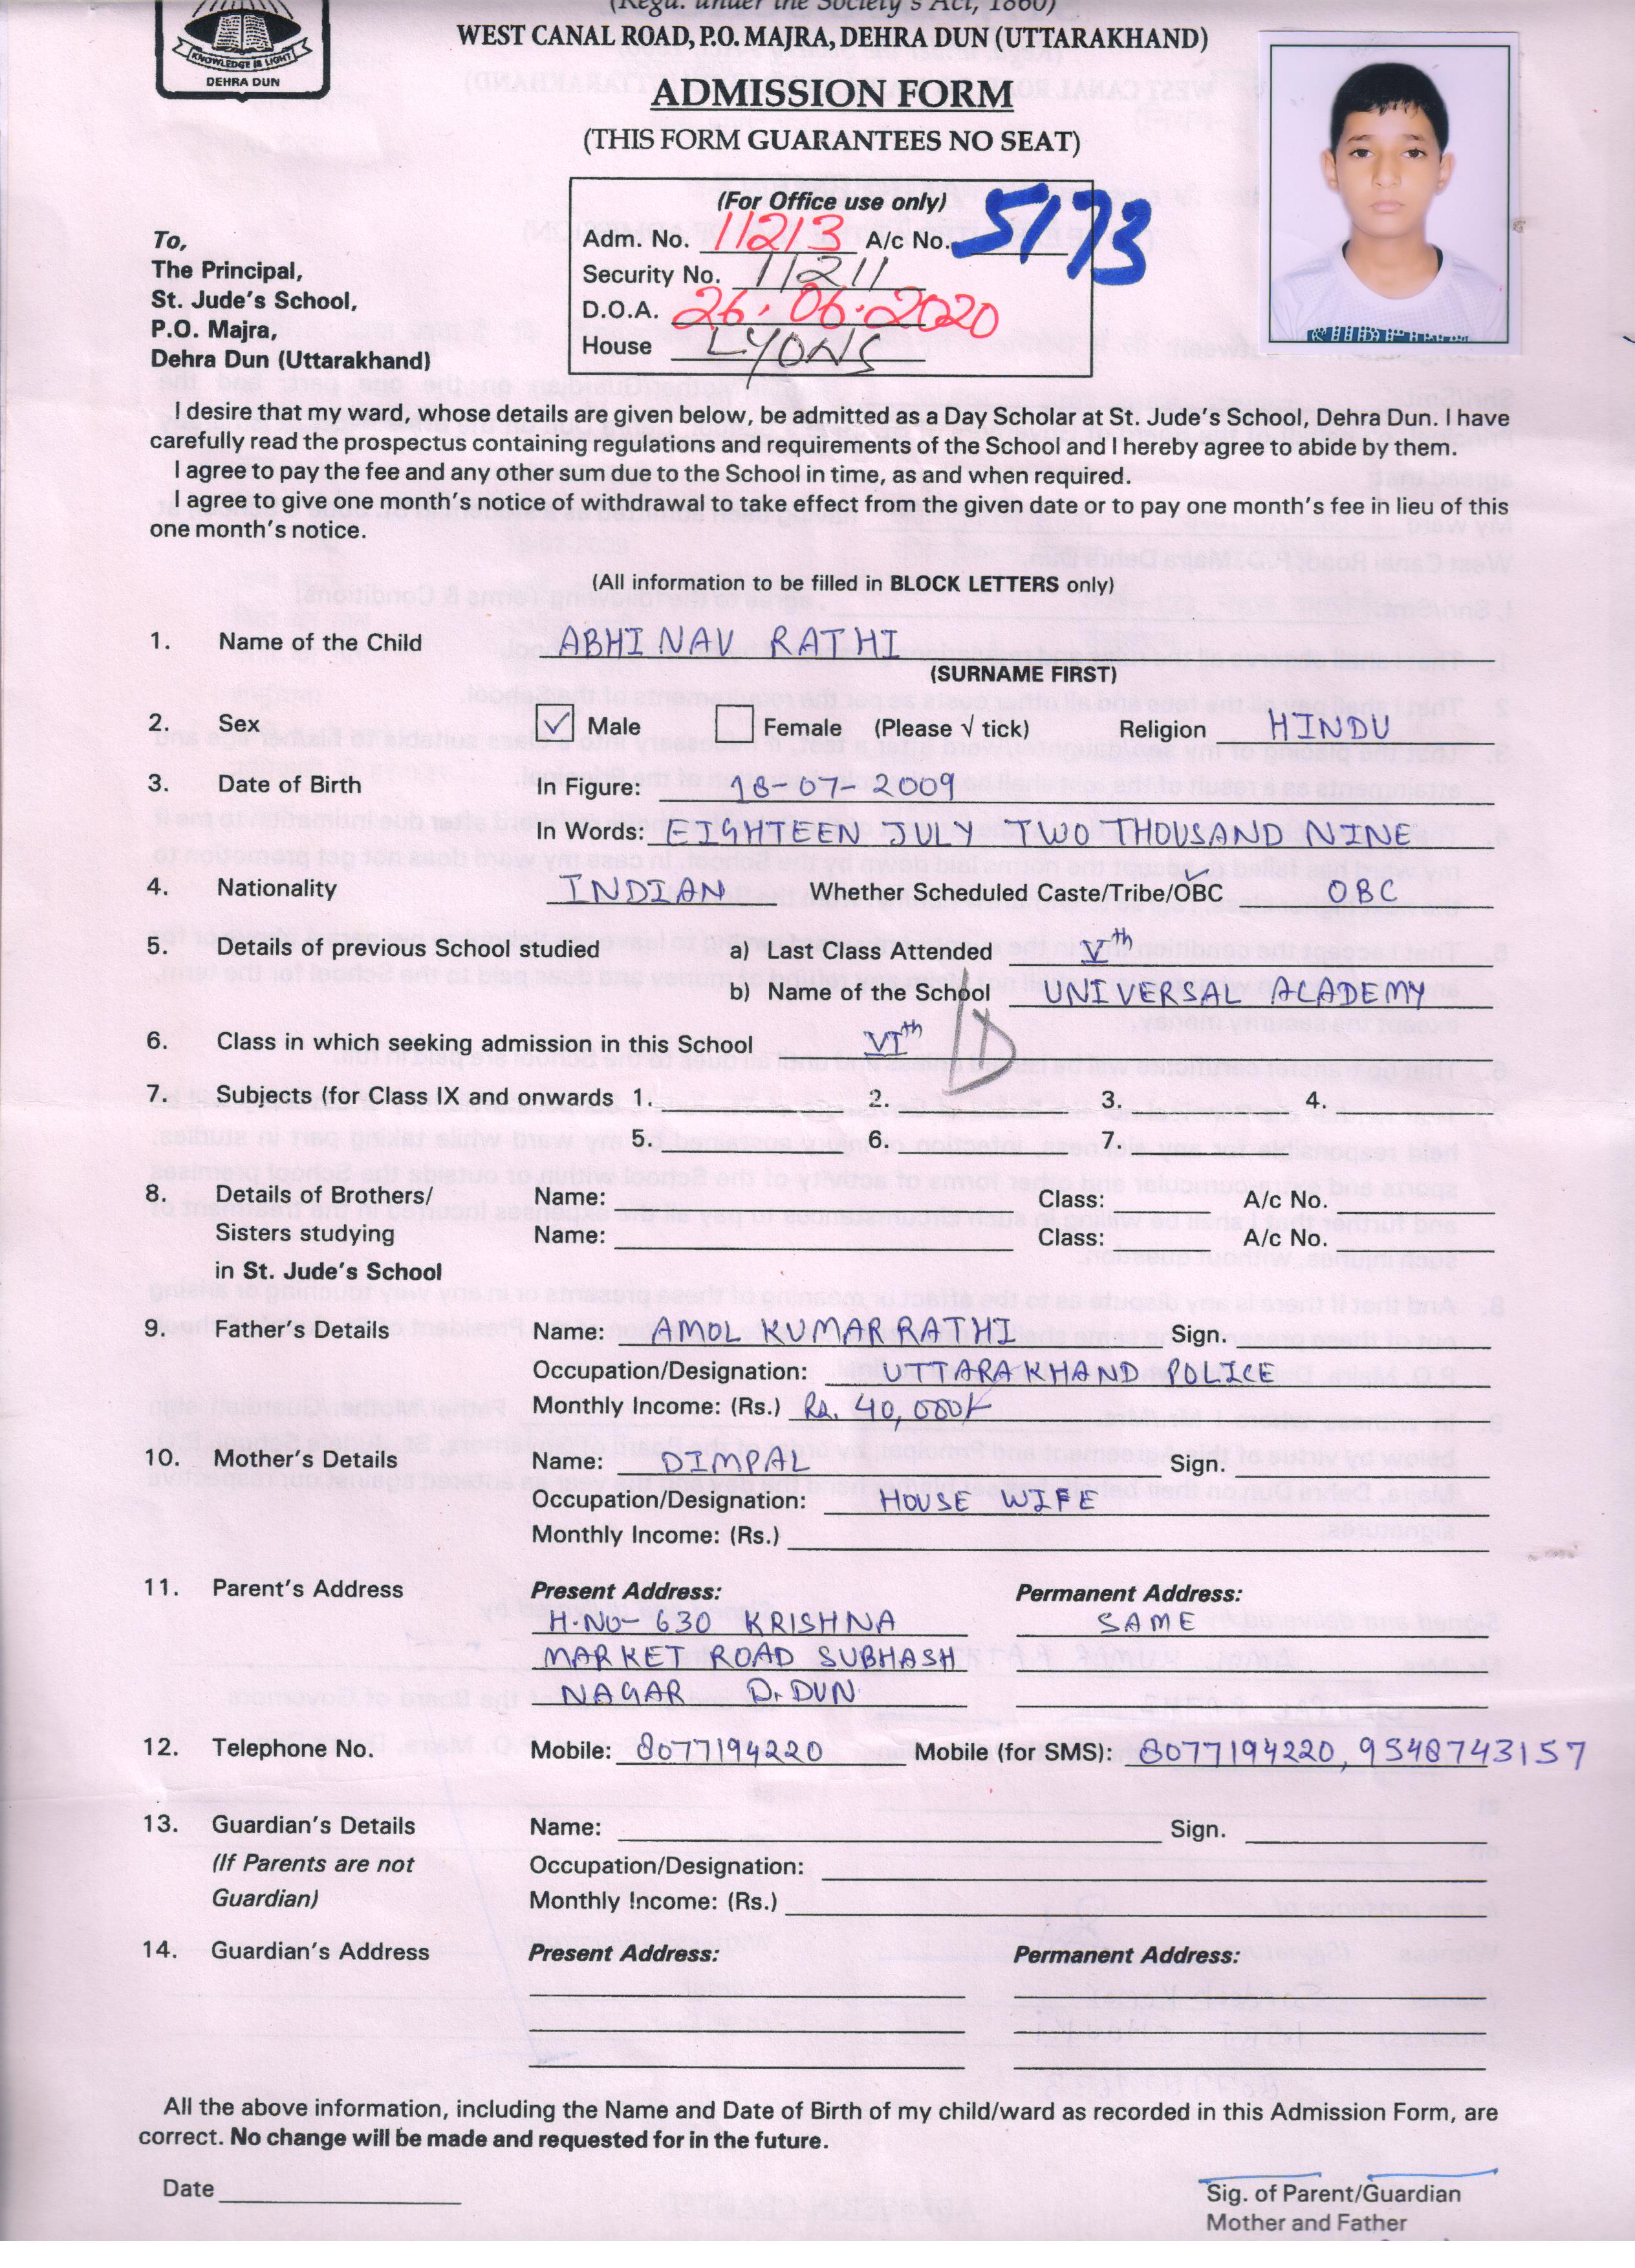 (Regd. under the Society's Act, 1860)
WEST CANAL ROAD, P.O. MAJRA, DEHRA DUN (UTTARAKHAND)
KNOWLEDGE IS LIGHT
DEHRA DUN
ADMISSION FORM
(THIS FORM GUARANTEES NO SEAT)
(For Office use only)
Adm. No. 11213 A/c No. 5173
Security No. 11211
D.O.A. 26.06.2020
House LYONS
To,
The Principal,
St. Jude's School,
P.O. Majra,
Dehra Dun (Uttarakhand)
I desire that my ward, whose details are given below, be admitted as a Day Scholar at St. Jude's School, Dehra Dun. I have
carefully read the prospectus containing regulations and requirements of the School and I hereby agree to abide by them.
I agree to pay the fee and any other sum due to the School in time, as and when required.
I agree to give one month's notice of withdrawal to take effect from the given date or to pay one month's fee in lieu of this
one month's notice.
(All information to be filled in BLOCK LETTERS only)
1. Name of the Child ABHINAV RATHI
(SURNAME FIRST)
2. Sex ✓ Male Female (Please √ tick) Religion HINDU
3. Date of Birth In Figure: 18-07-2009
In Words: EIGHTEEN JULY TWO THOUSAND NINE
4. Nationality INDIAN Whether Scheduled Caste/Tribe/OBC OBC
5. Details of previous School studied a) Last Class Attended Vth
b) Name of the School UNIVERSAL ACADEMY
6. Class in which seeking admission in this School VIth D
7. Subjects (for Class IX and onwards 1. 2. 3. 4.
5. 6. 7.
8. Details of Brothers/ Name: Class: A/c No.
Sisters studying Name: Class: A/c No.
in St. Jude's School
9. Father's Details Name: AMOL KUMAR RATHI Sign.
Occupation/Designation: UTTARAKHAND POLICE
Monthly Income: (Rs.) Rs. 40,000/-
10. Mother's Details Name: DIMPAL Sign.
Occupation/Designation: HOUSE WIFE
Monthly Income: (Rs.)
11. Parent's Address Present Address: Permanent Address:
H.NO-630 KRISHNA SAME
MARKET ROAD SUBHASH
NAGAR D.DUN
12. Telephone No. Mobile: 8077194220 Mobile (for SMS): 8077194220, 9548743157
13. Guardian's Details Name: Sign.
(If Parents are not Occupation/Designation:
Guardian) Monthly Income: (Rs.)
14. Guardian's Address Present Address: Permanent Address:
All the above information, including the Name and Date of Birth of my child/ward as recorded in this Admission Form, are
correct. No change will be made and requested for in the future.
Date
Sig. of Parent/Guardian
Mother and Father